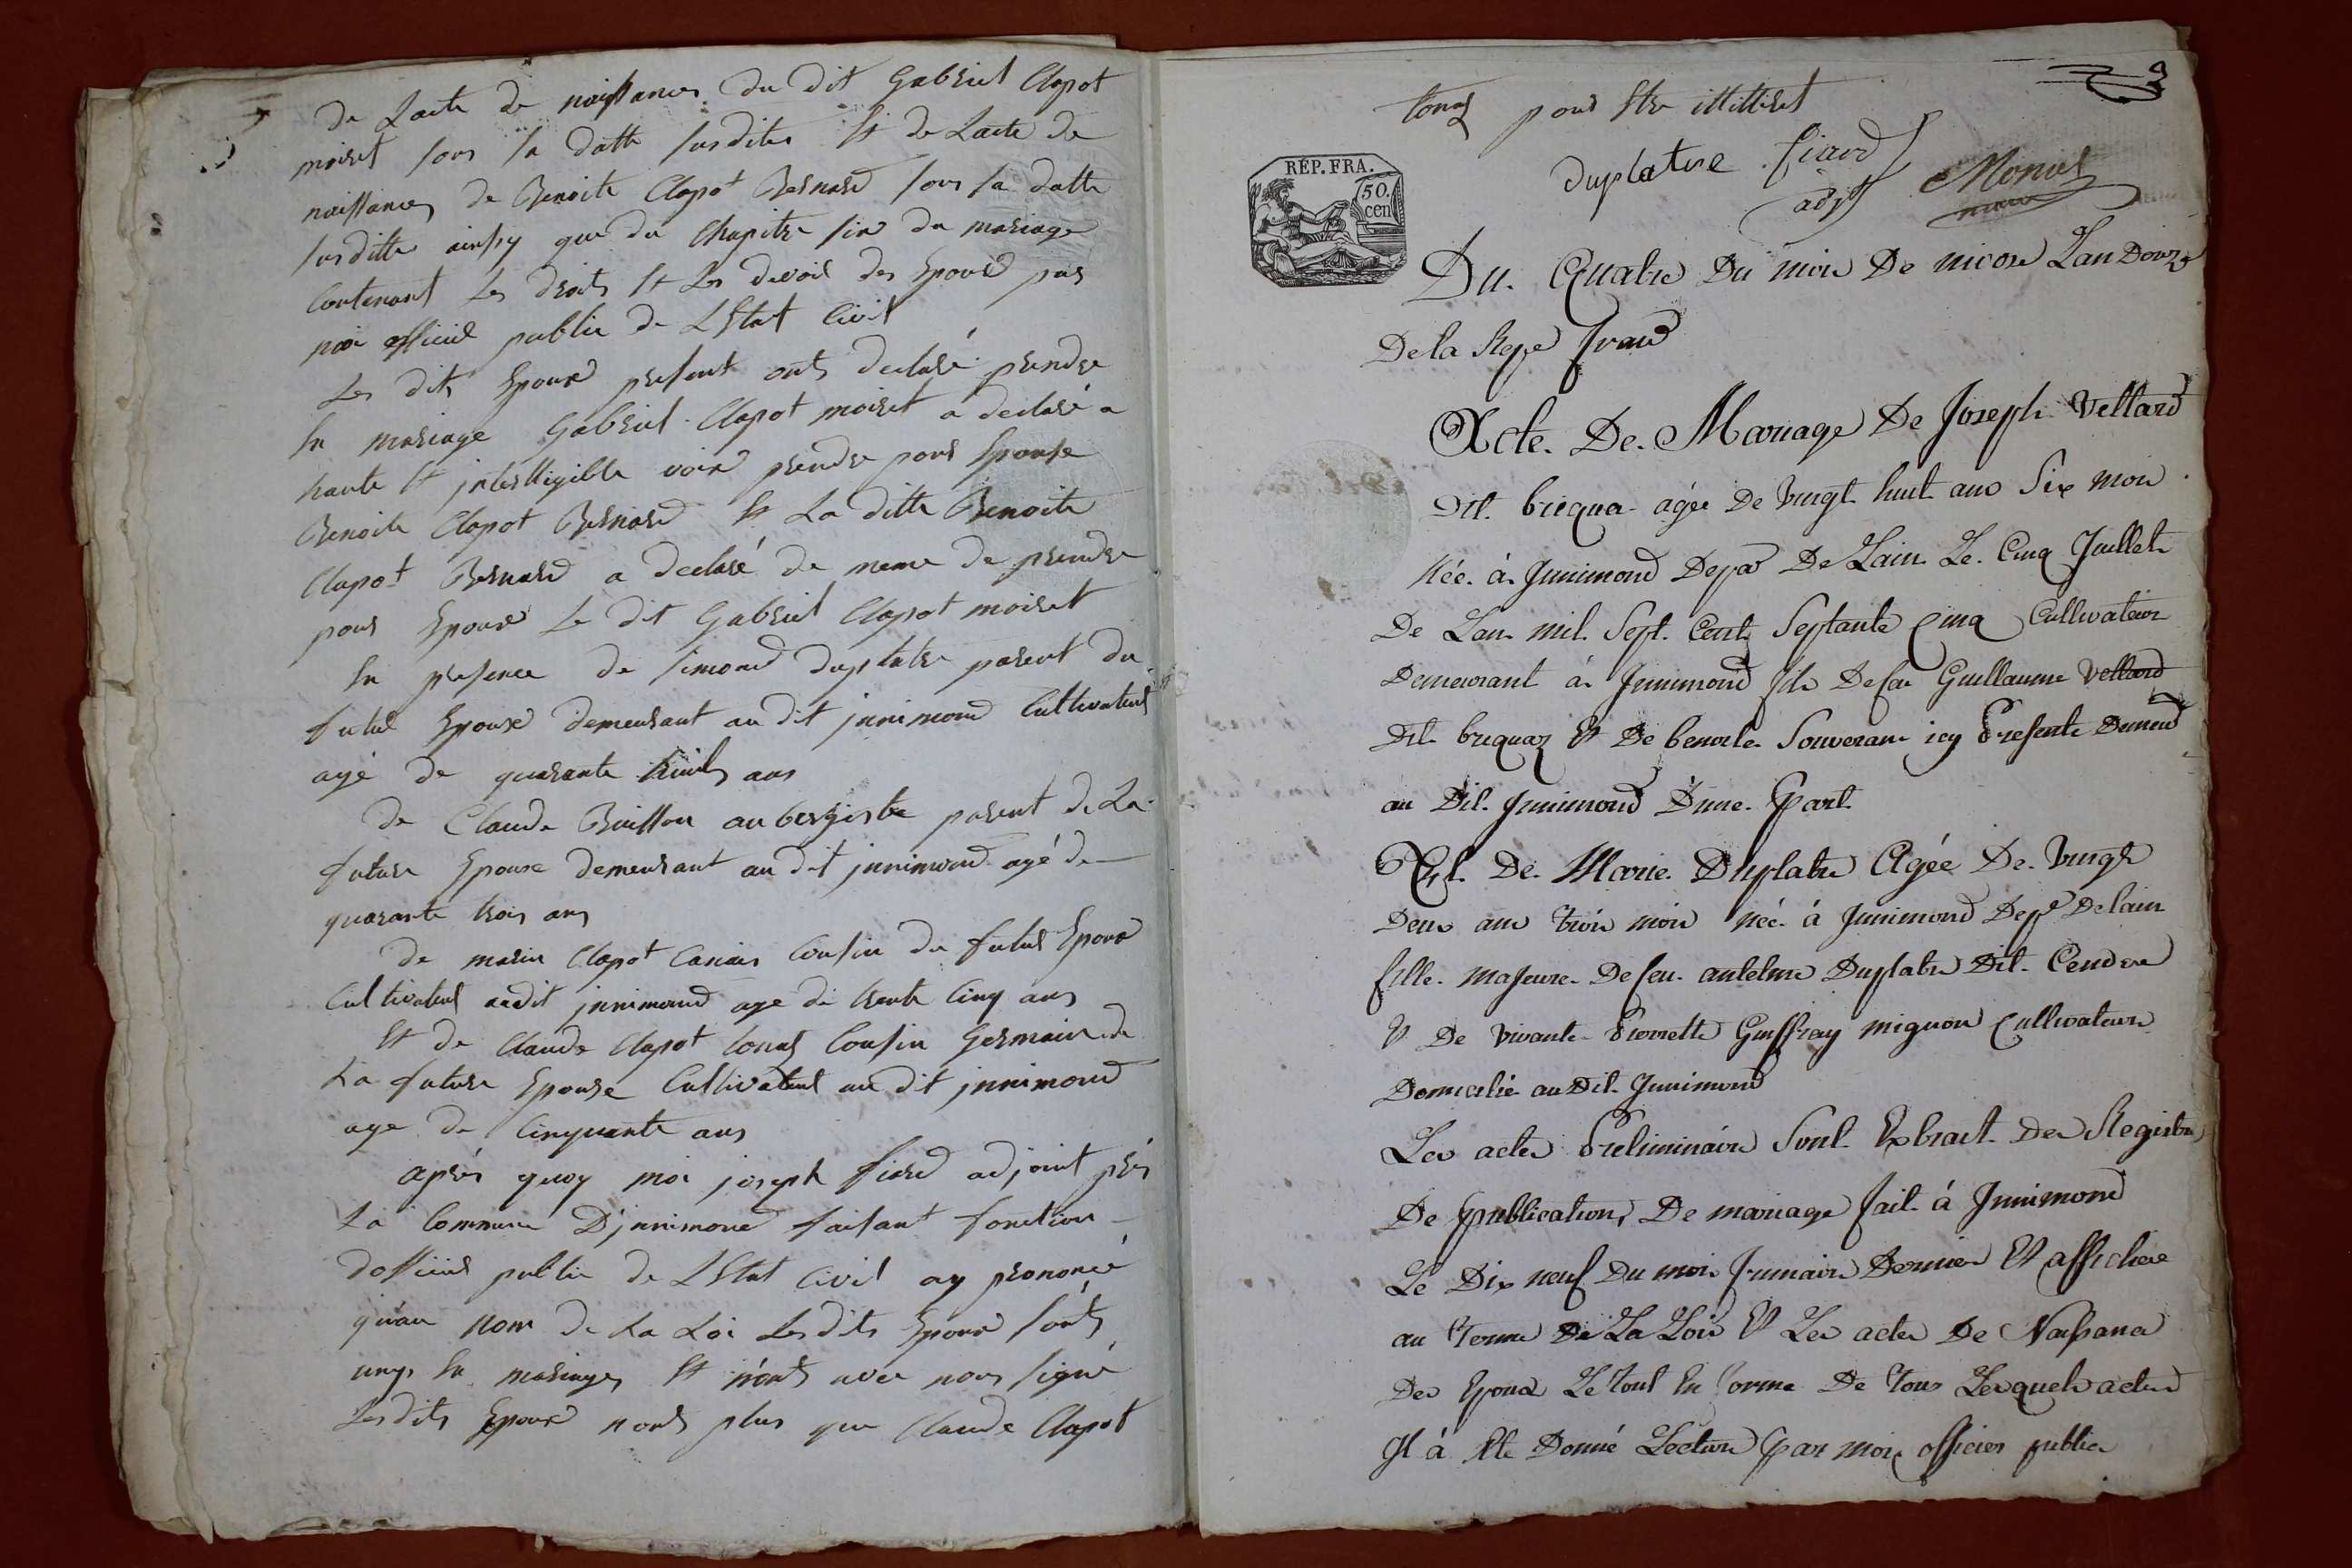 de Lacte de naissances du dit Gabriel Clapot
moiret sous sa datte susdites Et de Lacte de
naissances de Benoite Clapot Bernard sous sa datte
susditte ainsy que du Chapitre six du mariage
Contenant Les droits Et Les devoir des Epoux par
moi officier public de LEtat Civil
Les dits Epoux present onts declaré prendre
En mariage Gabriel Clapot moiret a declaré a
haute Et interlligible voix prendre pour Epouse
Benoite Clapot Bernard Et La ditte Benoite
Clapot Bernard a declaré de meme de prendre
pour Epoux Le dit Gabriel Clapot moiret
En presence de simond duplatre parent du
futur Epoux demeurant au dit innimond Cultivateur
agé de quarante huits ans
de Claude Buisson aubergiste parent de La
future Epouse demeurant au dit innimond agé de
quarante trois ans
de marin Clapot Canair Cousin du futur Epoux
Cultivateur audit innimond age de trente Cinq ans
Et de Claude Clapot tonas Cousin Germain de
La future Epouse Cultivateur au dit innimond
age de Cinquante ans
après quoy moi joseph fiard adjoint près
La Commune D'innimond faisant fonction
dofficier public de LEtat Civil ay prononcé
qu'au nom de La Loi Lesdits Epoux sonts
unys En mariages Et n'onts avec nous signé
Lesdits Epoux nonts plus que Claude Clapot
tonas pour Etre illitteret
duplatre fiard adjt Moniet
maire
REP. FRA.
50. cen
Du. Quatre Du mois De nivose Lan Douze
De la Repe franc
Acte. De. Mariage De Joseph Vettard
Dit. bricqua agée De Vingt huit ans Six mois
Née. à Innimond Depar De Lain Le. Cinq Juillet
De Lan mil. Sept. Cent Septante Cinq Cultivateur
Demeurant à Innimond fils De feu Guillaume Vettard
Dit bricquaz Et De benoite Souveran icy Présente Demeu
au Dit. Innimond D'une. Part.
Et. De. Marie. Duplatre Agée De. Vingt
Deux ans trois mois née. à Innimond Depe De lain
fille. majeure. De feu. antelme Duplatre Dit. Cendre
Et De vivante Pierrette Guiffray mignon Cultivateur
Domicilié au Dit. Innimond
Les actes Préliminaire Sont. Extrait Des Registre
De publication, De mariage fait à Innimond
Le Dix neuf Du mois frimaire Dernier Et affichée
au Terme De La Loix Et Les actes De Naissance
Des Epoux Le tout En forme De tous Lesquels actes
Il à Eté Donné Lecture Par moi officier public